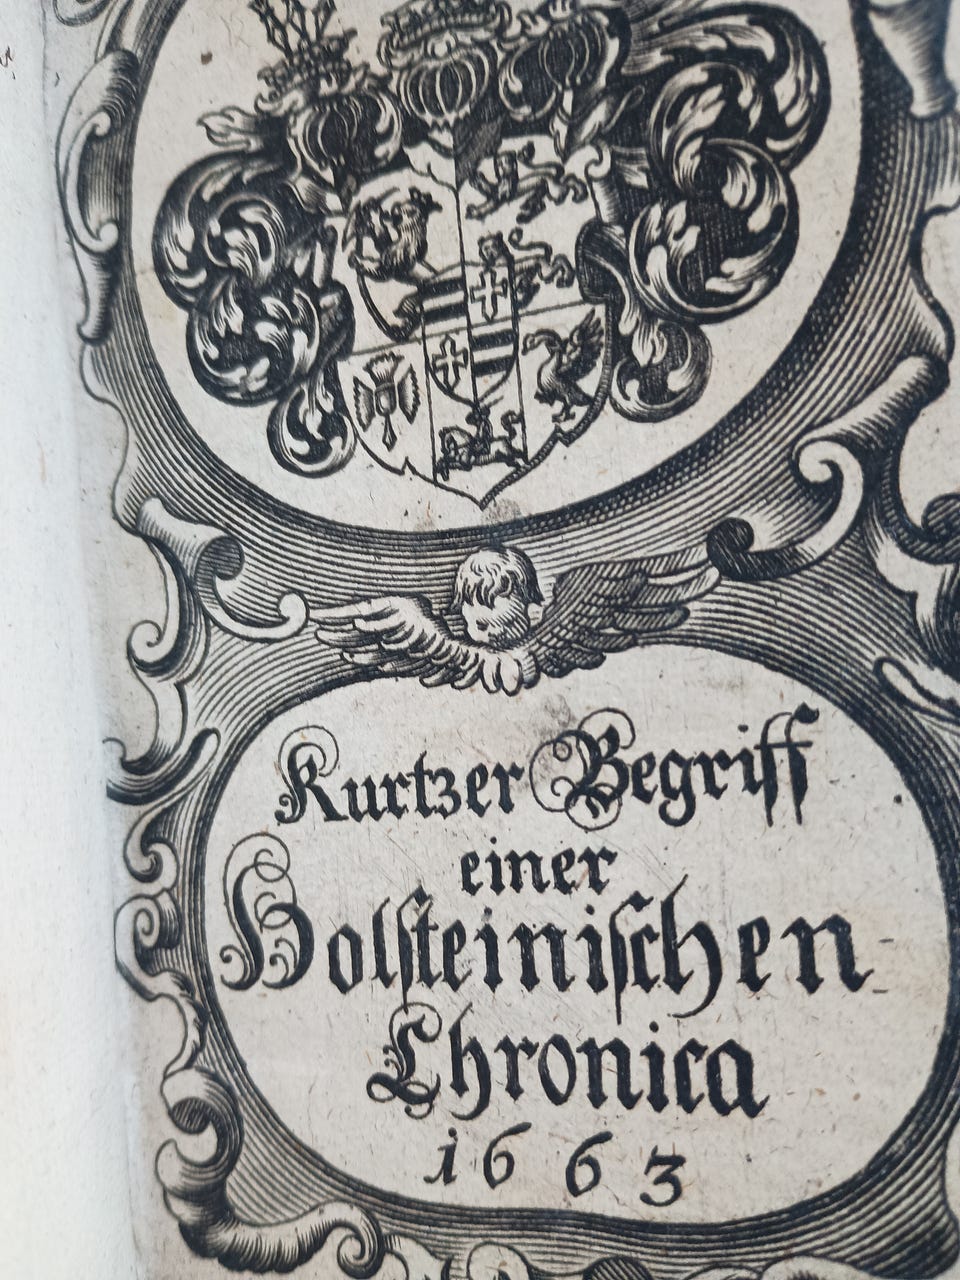 Kurtzer Begriff
einer
Holſteiniſchen
Chronica
1663